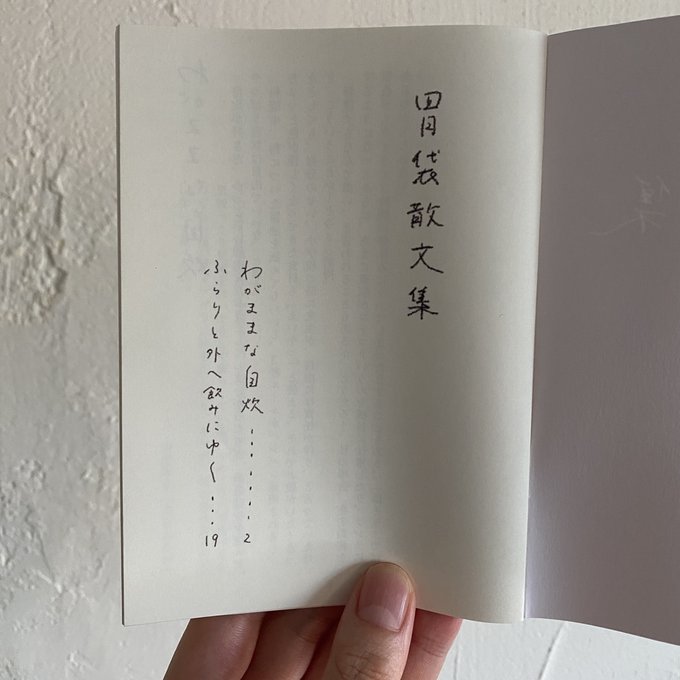 胃袋散文集
わがままな自炊………2
ふらりと外へ飲みにゆく…19